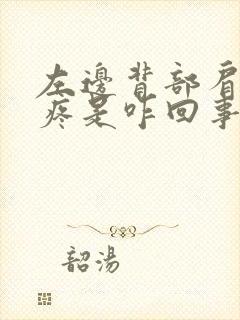 左邊背部肩
疼是咋回事
韶湯